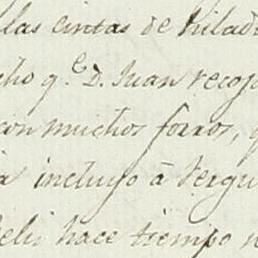 las cintas de hilad
cho q.e D. Juan recoj
con muchos forros,
incluyo á Vergu
hace tiempo